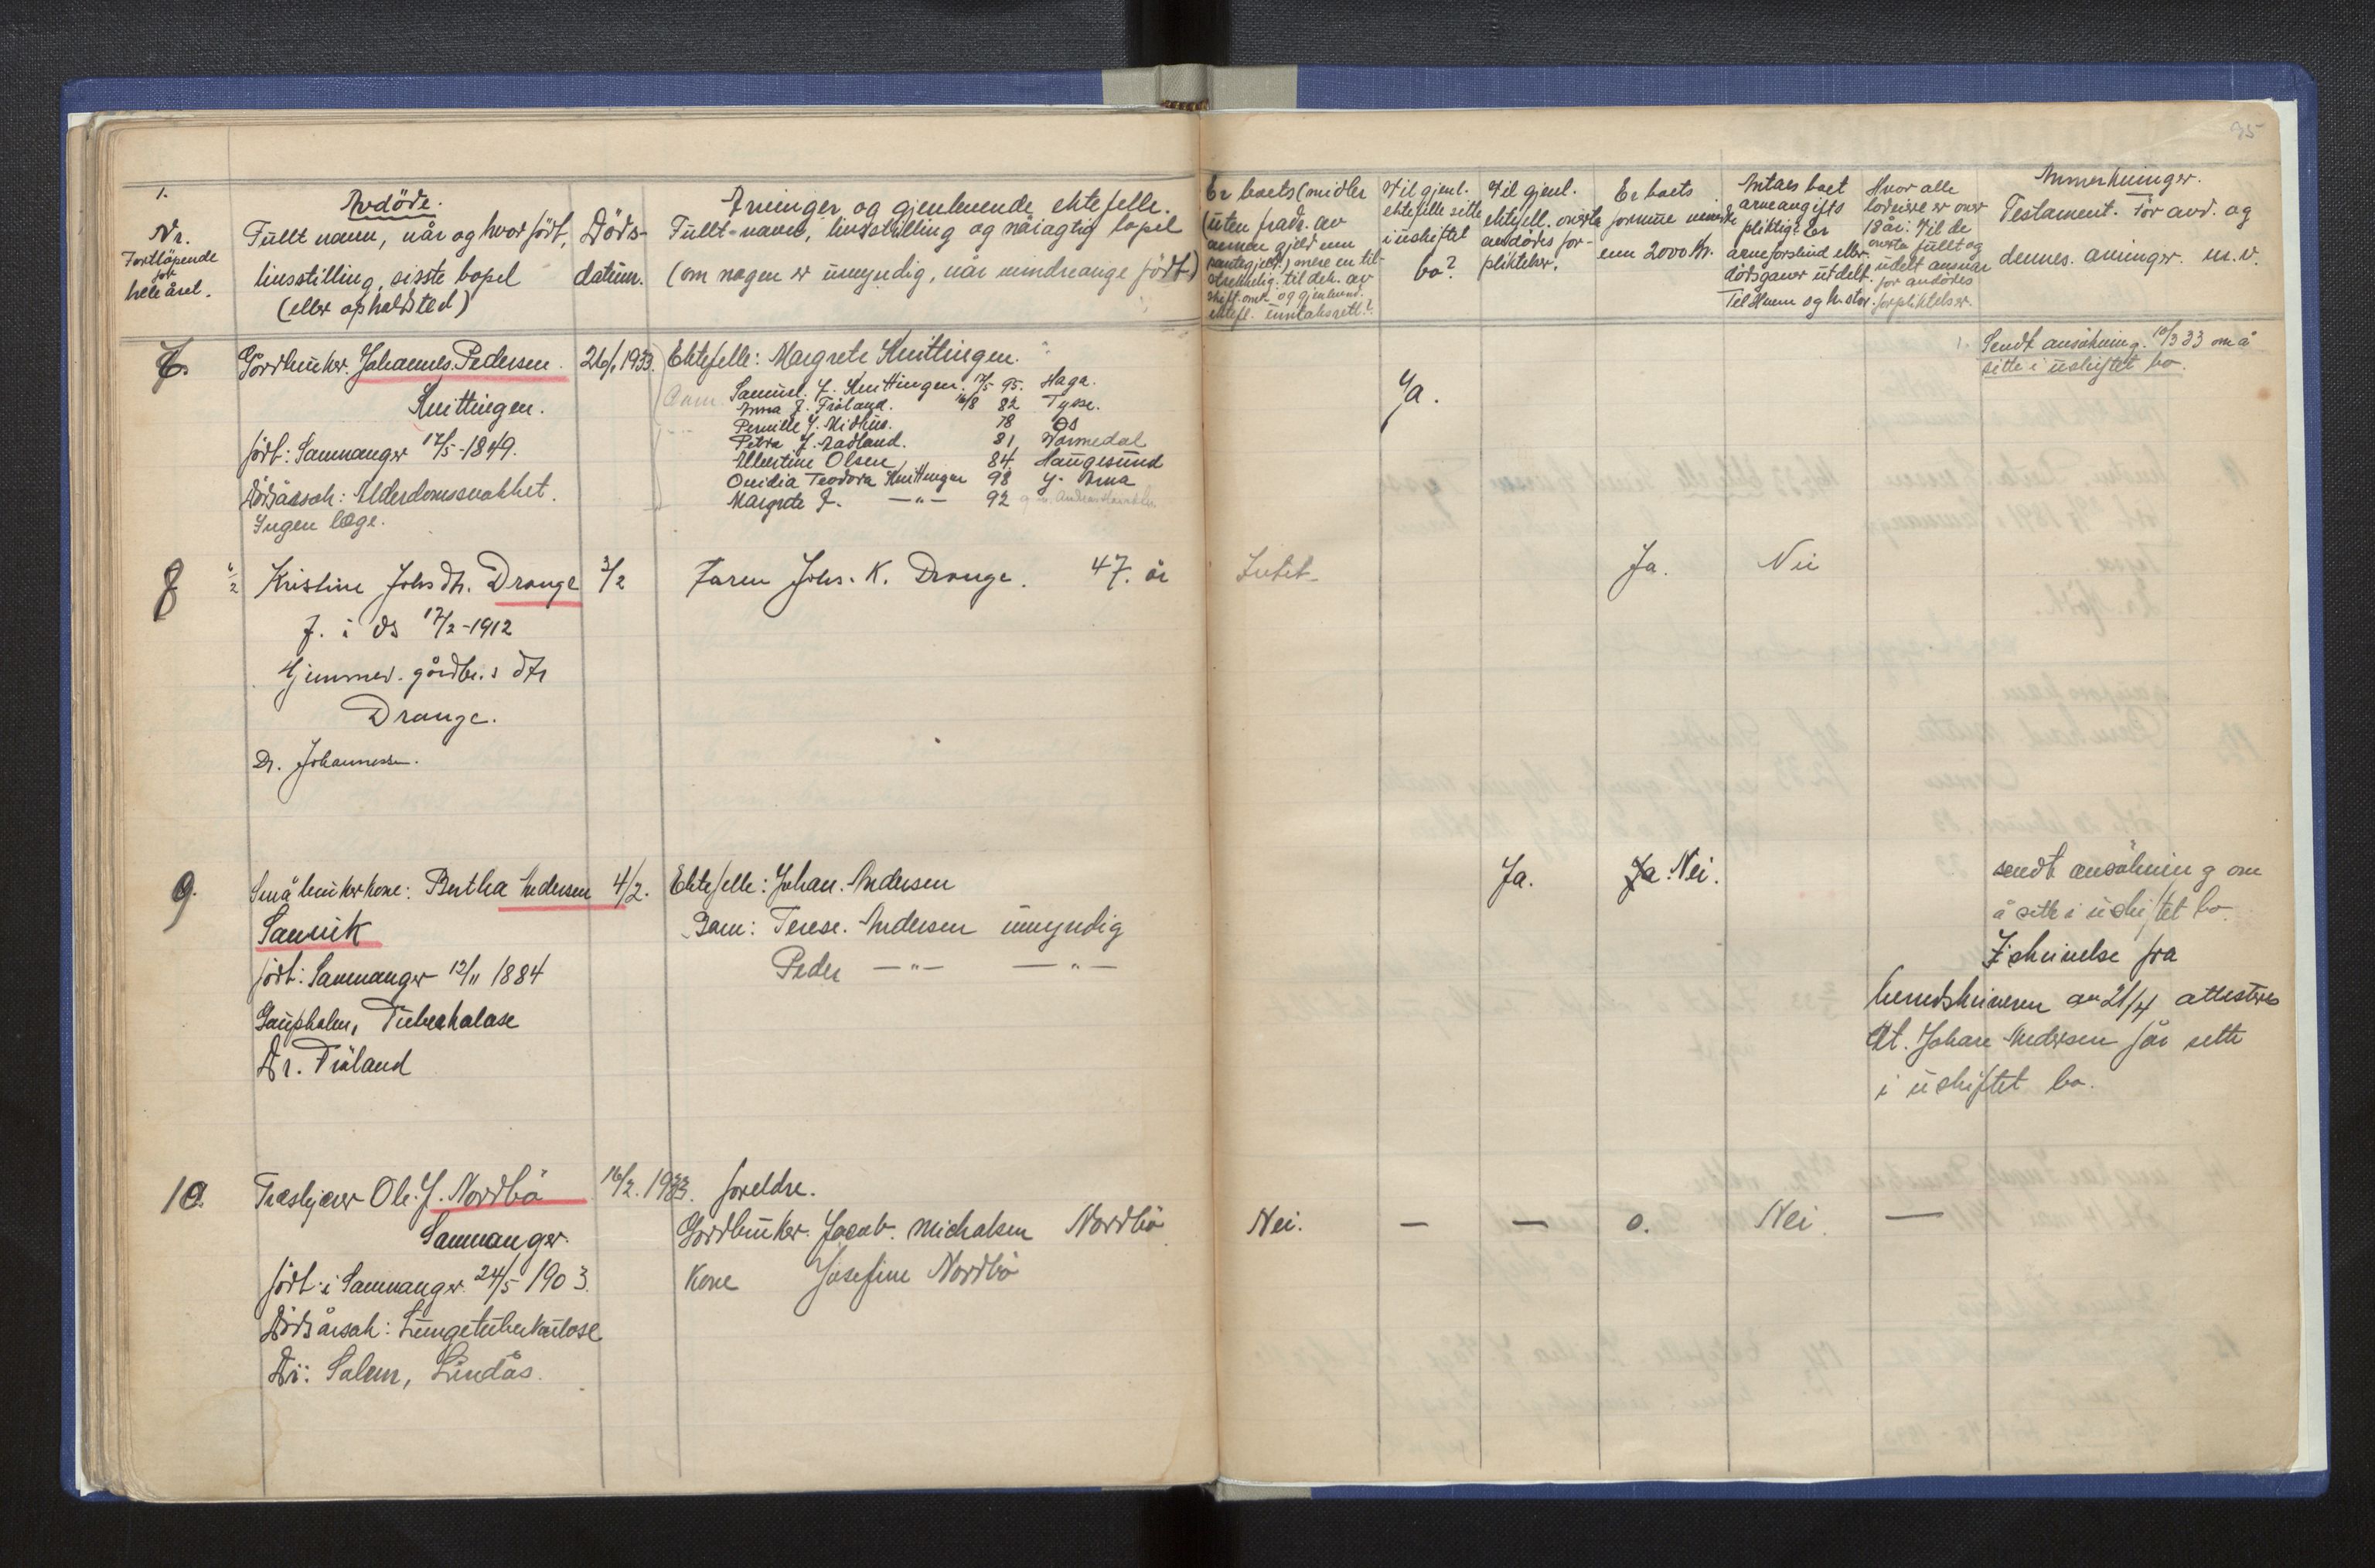 95
1.
Nr.
Fortløpende
for
hele året.
Avdöde.
Fullt navn, når og hvor født,
livsstilling, sisste bopel
(eller opholdsted)
Döds-
datum.
Arvinger og gjenlevende ektefelle.
Fullt navn, livsstilling og nöiagtig bopel
(om nogen er umyndig, når mindreårige født)
Er boets (midler
(uten fradr. av
annen gjeld enn
pantegjeld) mere en til-
strekkelig til dek. av
skift.omk. og gjenlevend.
ektef. inntaksrett?
Til gjenl.
ektefelle sitte
i uskiftet
bo?
Til gjenl.
ektefell. overta
avdödes for-
pliktelser.
Er boets
formue mindre
enn 2000 kr.
Antaes boet
arveavgifts
pliktig? Er
arveforskud eller
dödsgaver utdelt.
Til hvem og h. stor.
Hvor alle
lodeiere er over
18 år: Vil de
overta fullt og
udelt ansvar
for avdödes
forpliktelser.
Anmerkninger.
Testament. För avd. og
dennes arvinger. m. v.
7.
Gårdbruker. Johannes Pedersen
Knittingen.
født: Samnanger 17/5-1849.
Dödsårsak: Alderdomssvakhet.
Ingen læge.
26/1 1933.
Ektefelle: Margrete Knittingen.
Samuel J. Knittingen. 17/5 95. Haga.
Anna J. Tröland. 16/8 82 Tysse.
Pernille J. Midhus. 78 Os
Petra J. Aadland. 81 Normedal
Albertine Olsen 84 Haugesund
Ovidia Teodora Knittingen 98 Y. Arna
Margrete J. —"— 92
Ja.
Sendt ansökning 10/3 33 om å
sitte i uskiftet bo.
8
6/2 Kristine Johs dtr. Drange 3/2
f. i Os 17/2-1912
Hjemmev. gårdbr.s dtr
Drange.
Dr. Johannessen.
Faren Johs. K. Drange. 47. år
Intet
Ja.
Nei
9.
Småbrukerkone: Bertha Andersen 4/2.
Sanvik
født: Samnanger 12/11 1884
Gauphalen, Tuberkolose
Dr. Tröland
Ektefelle: Johan. Andersen
Barn: Terese. Andersen umyndig
Peder —"— —"—
Ja.
Ja. Nei.
sendt ansökning om
å sitte i uskiftet bo.
I skrivelse fra
herredskriveren av 21/4 attesteres
At. Johan Andersen får sitte
i uskiftet bo.
10.
Træskjærer Ole. J. Nordbö
Samnanger.
født i Samnanger 24/5 1903.
Dödsårsak: Lungetuberkulose
Dr: Salem, Lindås.
16/2. 1933.
foreldre.
Gårdbruker. Jacob. Michalsen Nordbö
kone Josefine Nordbö
Nei. — — 0. Nei. —